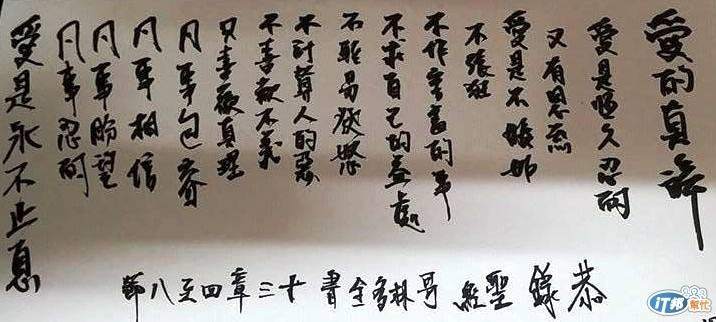 愛的真諦
愛是恆久忍耐
又有恩慈
愛是不嫉妒
不張狂
不作害羞的事
不求自己的益處
不輕易發怒
不計算人的惡
不喜歡不義
只喜歡真理
凡事包容
凡事相信
凡事盼望
凡事忍耐
愛是永不止息
恭錄聖經哥林多全書十三章四至八節
iT邦幫忙